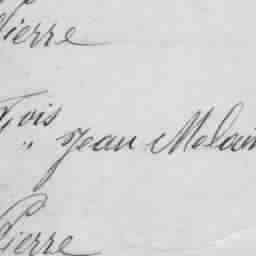 Pierre
çois
" Jean Melain
Pierre